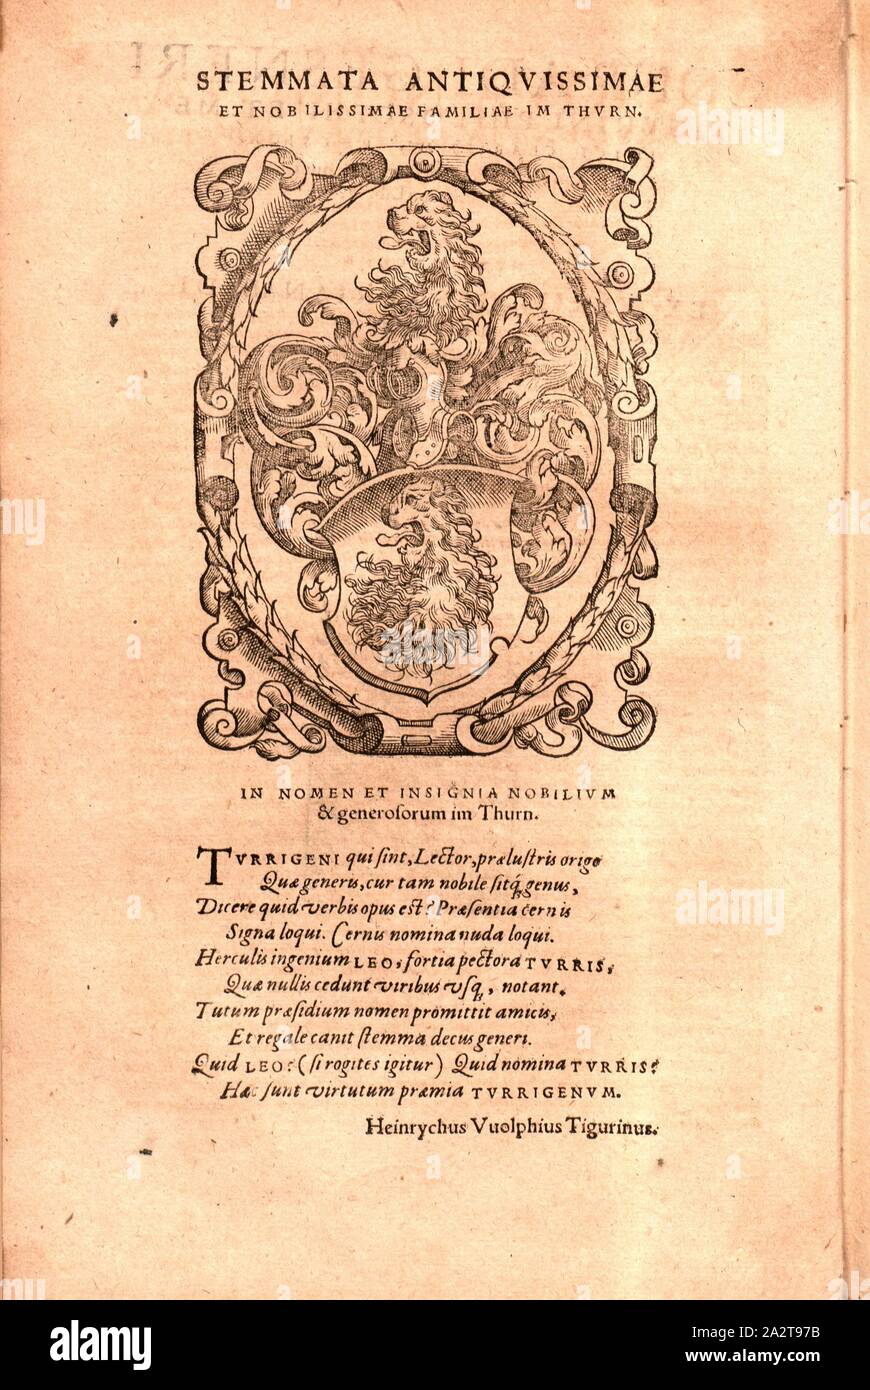 STEMMATA ANTIQVISSIMAE
ET NOBILISSIMAE FAMILIAE IM THVRN.
IN NOMEN ET INSIGNIA NOBILIVM
& generosorum im Thurn.
TVRRIGENI qui sint, Lector, prælustris origo
Quæ generis, cur tam nobile sitq́; genus,
Dicere quid verbis opus est? Præsentia cernis
Signa loqui. Cernis nomina nuda loqui.
Herculis ingenium LEO, fortia pectora TVRRIS,
Quæ nullis cedunt viribus vsq́;, notant.
Tutum præsidium nomen promittit amicis,
Et regale canit stemma decus generi.
Quid LEO? (si rogites igitur) Quid nomina TVRRIS?
Hæc sunt virtutum præmia TVRRIGENVM.
Heinrychus Vuolphius Tigurinus.
alamy
Image ID: 2A2T97B
www.alamy.com